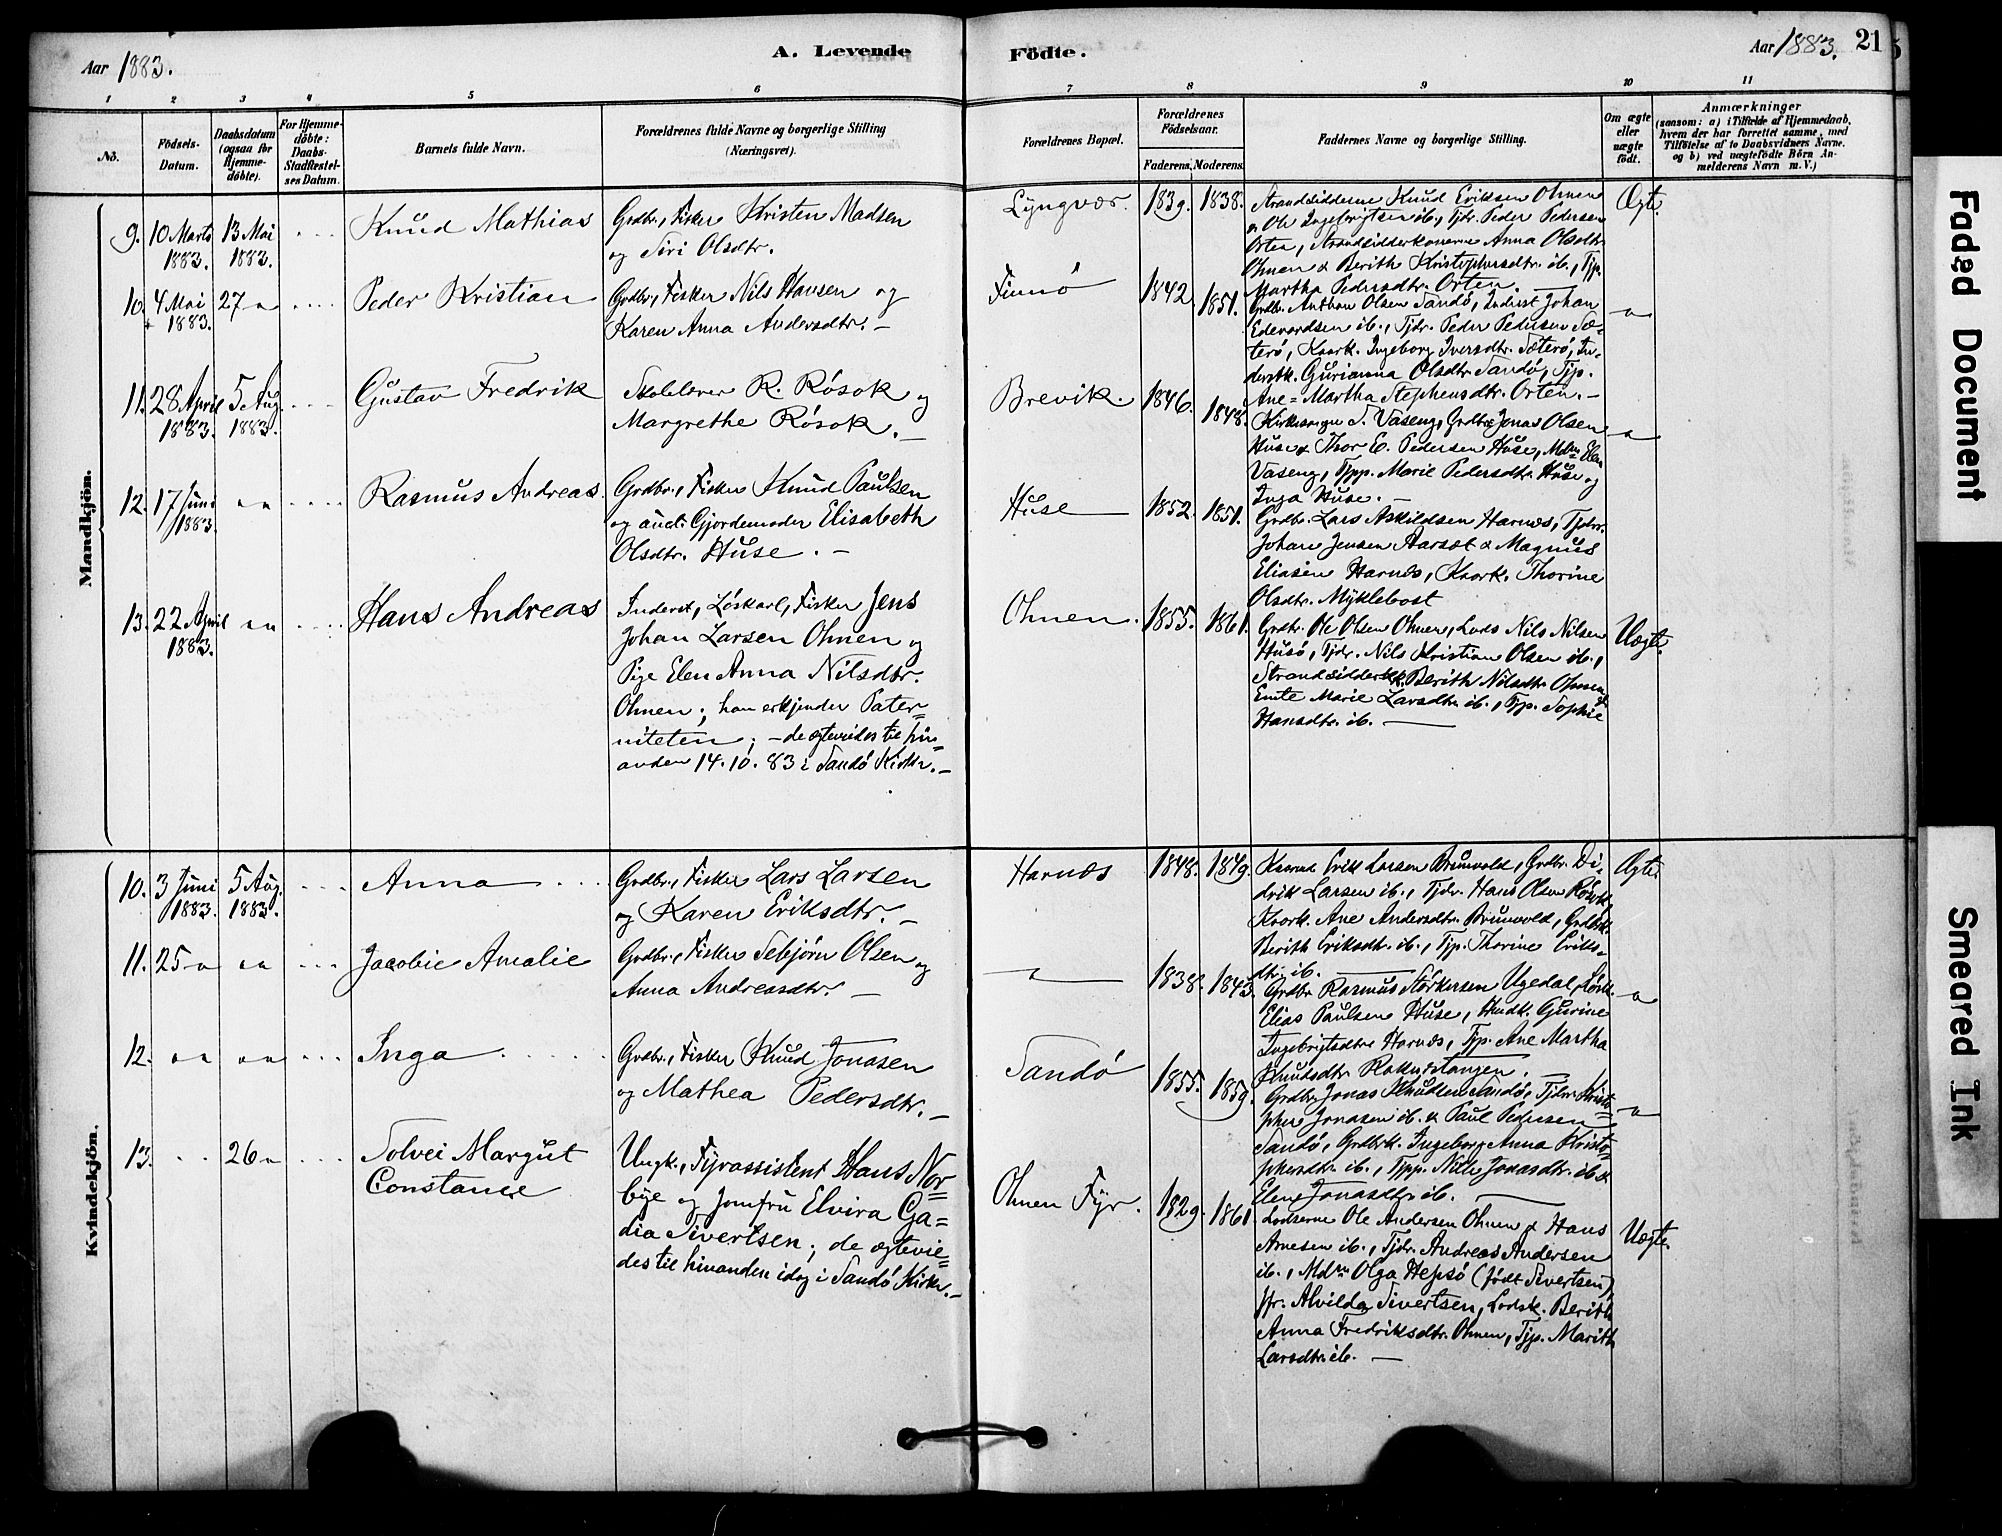 Aar 1883.
A. Levende
Födte.
Aar 1883. 21
1 2 3 4 5 6 7 8 9 10 11
No.
Födsels-
Datum.
Daabsdatum
(ogsaa for
Hjemme-
döbte).
For Hjemme-
döbte:
Daabs-
Stadfæstel-
ses Datum.
Barnets fulde Navn.
Forældrenes fulde Navne og borgerlige Stilling
(Næringsvei).
Forældrenes Bopæl.
Forældrenes
Födselsaar.
Faderens.
Moderens.
Faddernes Navne og borgerlige Stilling.
Om ægte
eller
uægte
födt.
Anmærkninger
(saasom: a) i Tilfælde af Hjemmedaab,
hvem der har forrettet samme, med
Tilföielse af to Daabsvidners Navne.
og b) ved uægtefödte Börn An-
melderens Navn m.V.)
Mandkjön.
9. 10 Marts
1883.
13 Mai
1883.
Knud Mathias
Grdbr., Fisker Kristen Madsen
og Siri Olsdtr.
Lyngvær.
1839. 1838.
Strandsidderne Knud Eriksen Ohnen
& Ole Ingebrigtsen ib., Tjdr. Peder Pedersen
Orten, Strandsidderkonerne Anna Olsdtr.
Ohnen & Berith Kristophersdtr. ib., Tjp.
Martha Pedersdtr. Orten. —
Ægte.
10. 4 Mai
1883.
27 "
Peder Kristian
Grdbr., Fisker Nils Hansen og
Karen Anna Andersdtr. —
Finnö
1842 1851.
Grdbr. Anthon Olsen Sandö, Inderst Johan
Edevardsen ib., Tjdr. Peder Pedersen Sæ-
terö, Kaark. Ingeborg Iversdtr. Sæterö, In-
derstk. Gurianna Olsdtr. Sandö, Tjp.
Ane-Martha Stephensdtr. Orten. —
11. 28 April
1883.
5 Aug.
1883.
Gustav Fredrik
Skolelærer R. Rösok og
Margrethe Rösok. —
Brevik.
1846. 1848.
Kirkesanger S. Vaseng, Grdbr. Jonas Olsen
Huse & Thor E. Pedersen Huse, Mdm Elen
Vaseng, Tjpp. Marie Pedersdtr. Huse og
Inga Huse. —
12. 17 Juni
1883.
Rasmus Andreas
Grdbr., Fisker Knud Paulsen
og aud. Gjordemoder Elisabeth
Olsdtr. Huse. —
Huse
1852. 1851.
Grdbr. Lars Askildsen Harnæs, Tjdrr.
Johan Jensen Aarsæt & Magnus
Eliasen Harnæs, Kaark. Thorine
Olsdtr. Myklebost
13. 22 April
1883.
Hans Andreas
Inderst, Löskarl, Fisker Jens
Johan Larsen Ohnen og
Pige Elen Anna Nilsdtr.
Ohnen; han erkjender Pater-
niteten; — de ægteviedes til hin-
anden 14.10.83 i Sandö Kirke. —
Ohnen.
1855. 1861.
Grdbr. Ole Olsen Ohnen, Lods Nils Nilsen
Husö, Tjdr. Nils Kristian Olsen ib.,
Strandsidderk. Berith Nilsdtr. Ohnen,
Enke Marie Larsdtr. ib., Tjp. Sophie
Hansdtr. ib.
Uægte.
Kvindekjön.
10. 3 Juni
1883.
5 Aug.
1883.
Anna
Grdbr., Fisker Lars Larsen
og Karen Eriksdtr. —
Harnæs
1848. 1849.
Erik Larsen Brunvold, Grdbr. Di-
drik Larsen ib., Tjdr. Hans Olsen Rösok,
Kaark. Ane Andersdtr. Brunvold, Grdbrk.
Berith Eriksdtr. ib., Tjp. Thorine Eriks-
dtr. ib.
Ægte.
11. 25 "
Jacobie Amalie
Grdbr., Fisker Sebjörn Olsen og
Anna Andreasdtr. —
1838. 1843.
Grdbr. Rasmus Störkersen Ugedal,
Elias Paulsen Huse, Husk. Gurine
Ingebrigtsdtr. Harnæs, Tjp. Ane Martha
Knudsdtr. Rakvikstangen.
12.
Inga
Grdbr., Fisker Knud Jonasen
og Mathea Pedersdtr. —
Sandö
1855. 1859.
Grdbr. Jonas Knudsen Sandö, Tjdrr. Kristo-
pher Jonasen ib. & Paul Pedersen
Sandö, Grdbrk. Ingeborg Anna Kristo-
phersdtr. ib., Tjpp. Jonasdtr. ib. &
Elen Jonasdtr. ib.
13.
26 "
Solvei Margut
Constance
Ungk., Fyrassistent Hans Nor-
bye og Jomfru Elvira Ga-
dia Sivertsen; de ægtevie-
des til hinanden idag i Sandö Kirke. —
Ohnen Fyr.
1829. 1861
Lodserne Ole Andersen Ohnen & Hans
Arnesen ib., Tjdr. Andreas Andersen
ib., Mdm Olga Hepsö (födt Sivertsen),
jfr. Alvilda Sivertsen, Lodsk. Berith
Anna Fredriksdtr. Ohnen, Tjp. Marith
Larsdtr. ib. —
Uægte.
Faded Document
Smeared Ink